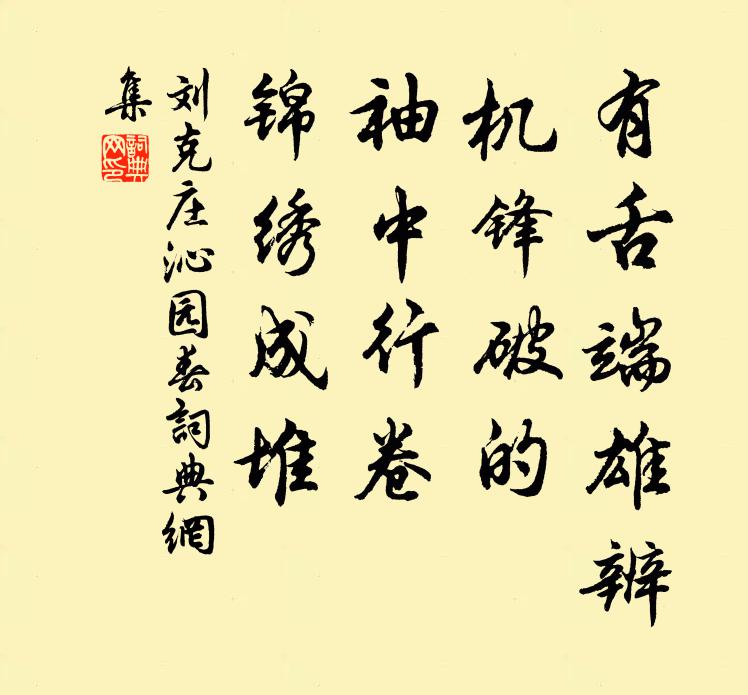 有舌端雄辨
机锋破的
袖中行卷
锦绣成堆
刘克庄沁园春詞典網
集
詞典
网印